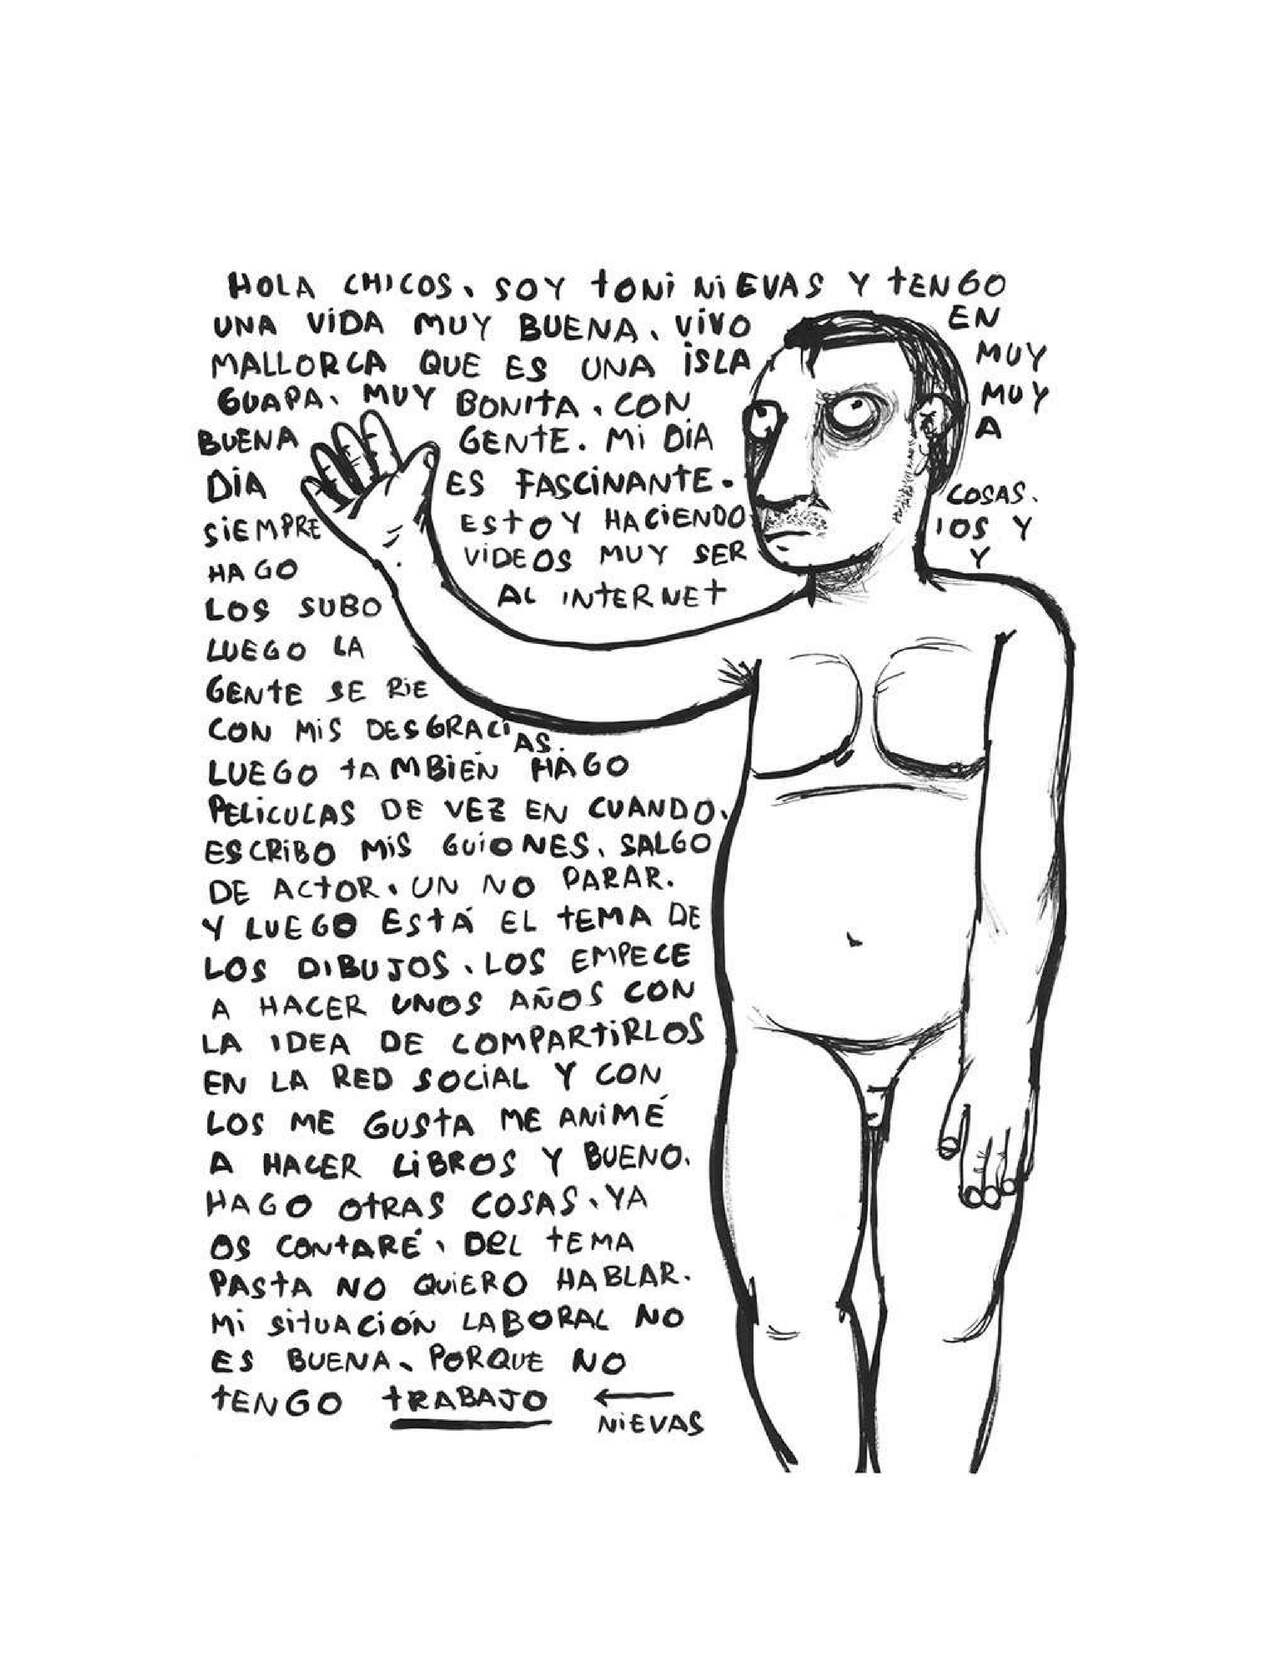 HOLA CHICOS. SOY TONI NIEVAS Y TENGO
UNA VIDA MUY BUENA. VIVO EN
MALLORCA QUE ES UNA ISLA MUY
GUAPA. MUY BONITA. CON MUY
BUENA GENTE. MI DIA A
DIA ES FASCINANTE.
SIEMPRE ESTOY HACIENDO COSAS.
HAGO VIDEOS MUY SERIOS Y
LOS SUBO AL INTERNET Y
LUEGO LA
GENTE SE RIE
CON MIS DESGRACIAS.
LUEGO TAMBIEN HAGO
PELICULAS DE VEZ EN CUANDO.
ESCRIBO MIS GUIONES. SALGO
DE ACTOR. UN NO PARAR.
Y LUEGO ESTÁ EL TEMA DE
LOS DIBUJOS. LOS EMPECE
A HACER UNOS AÑOS CON
LA IDEA DE COMPARTIRLOS
EN LA RED SOCIAL Y CON
LOS ME GUSTA ME ANIMÉ
A HACER LIBROS Y BUENO.
HAGO OTRAS COSAS. YA
OS CONTARÉ. DEL TEMA
PASTA NO QUIERO HABLAR.
MI SITUACIÓN LABORAL NO
ES BUENA. PORQUE NO
TENGO TRABAJO ←
NIEVAS